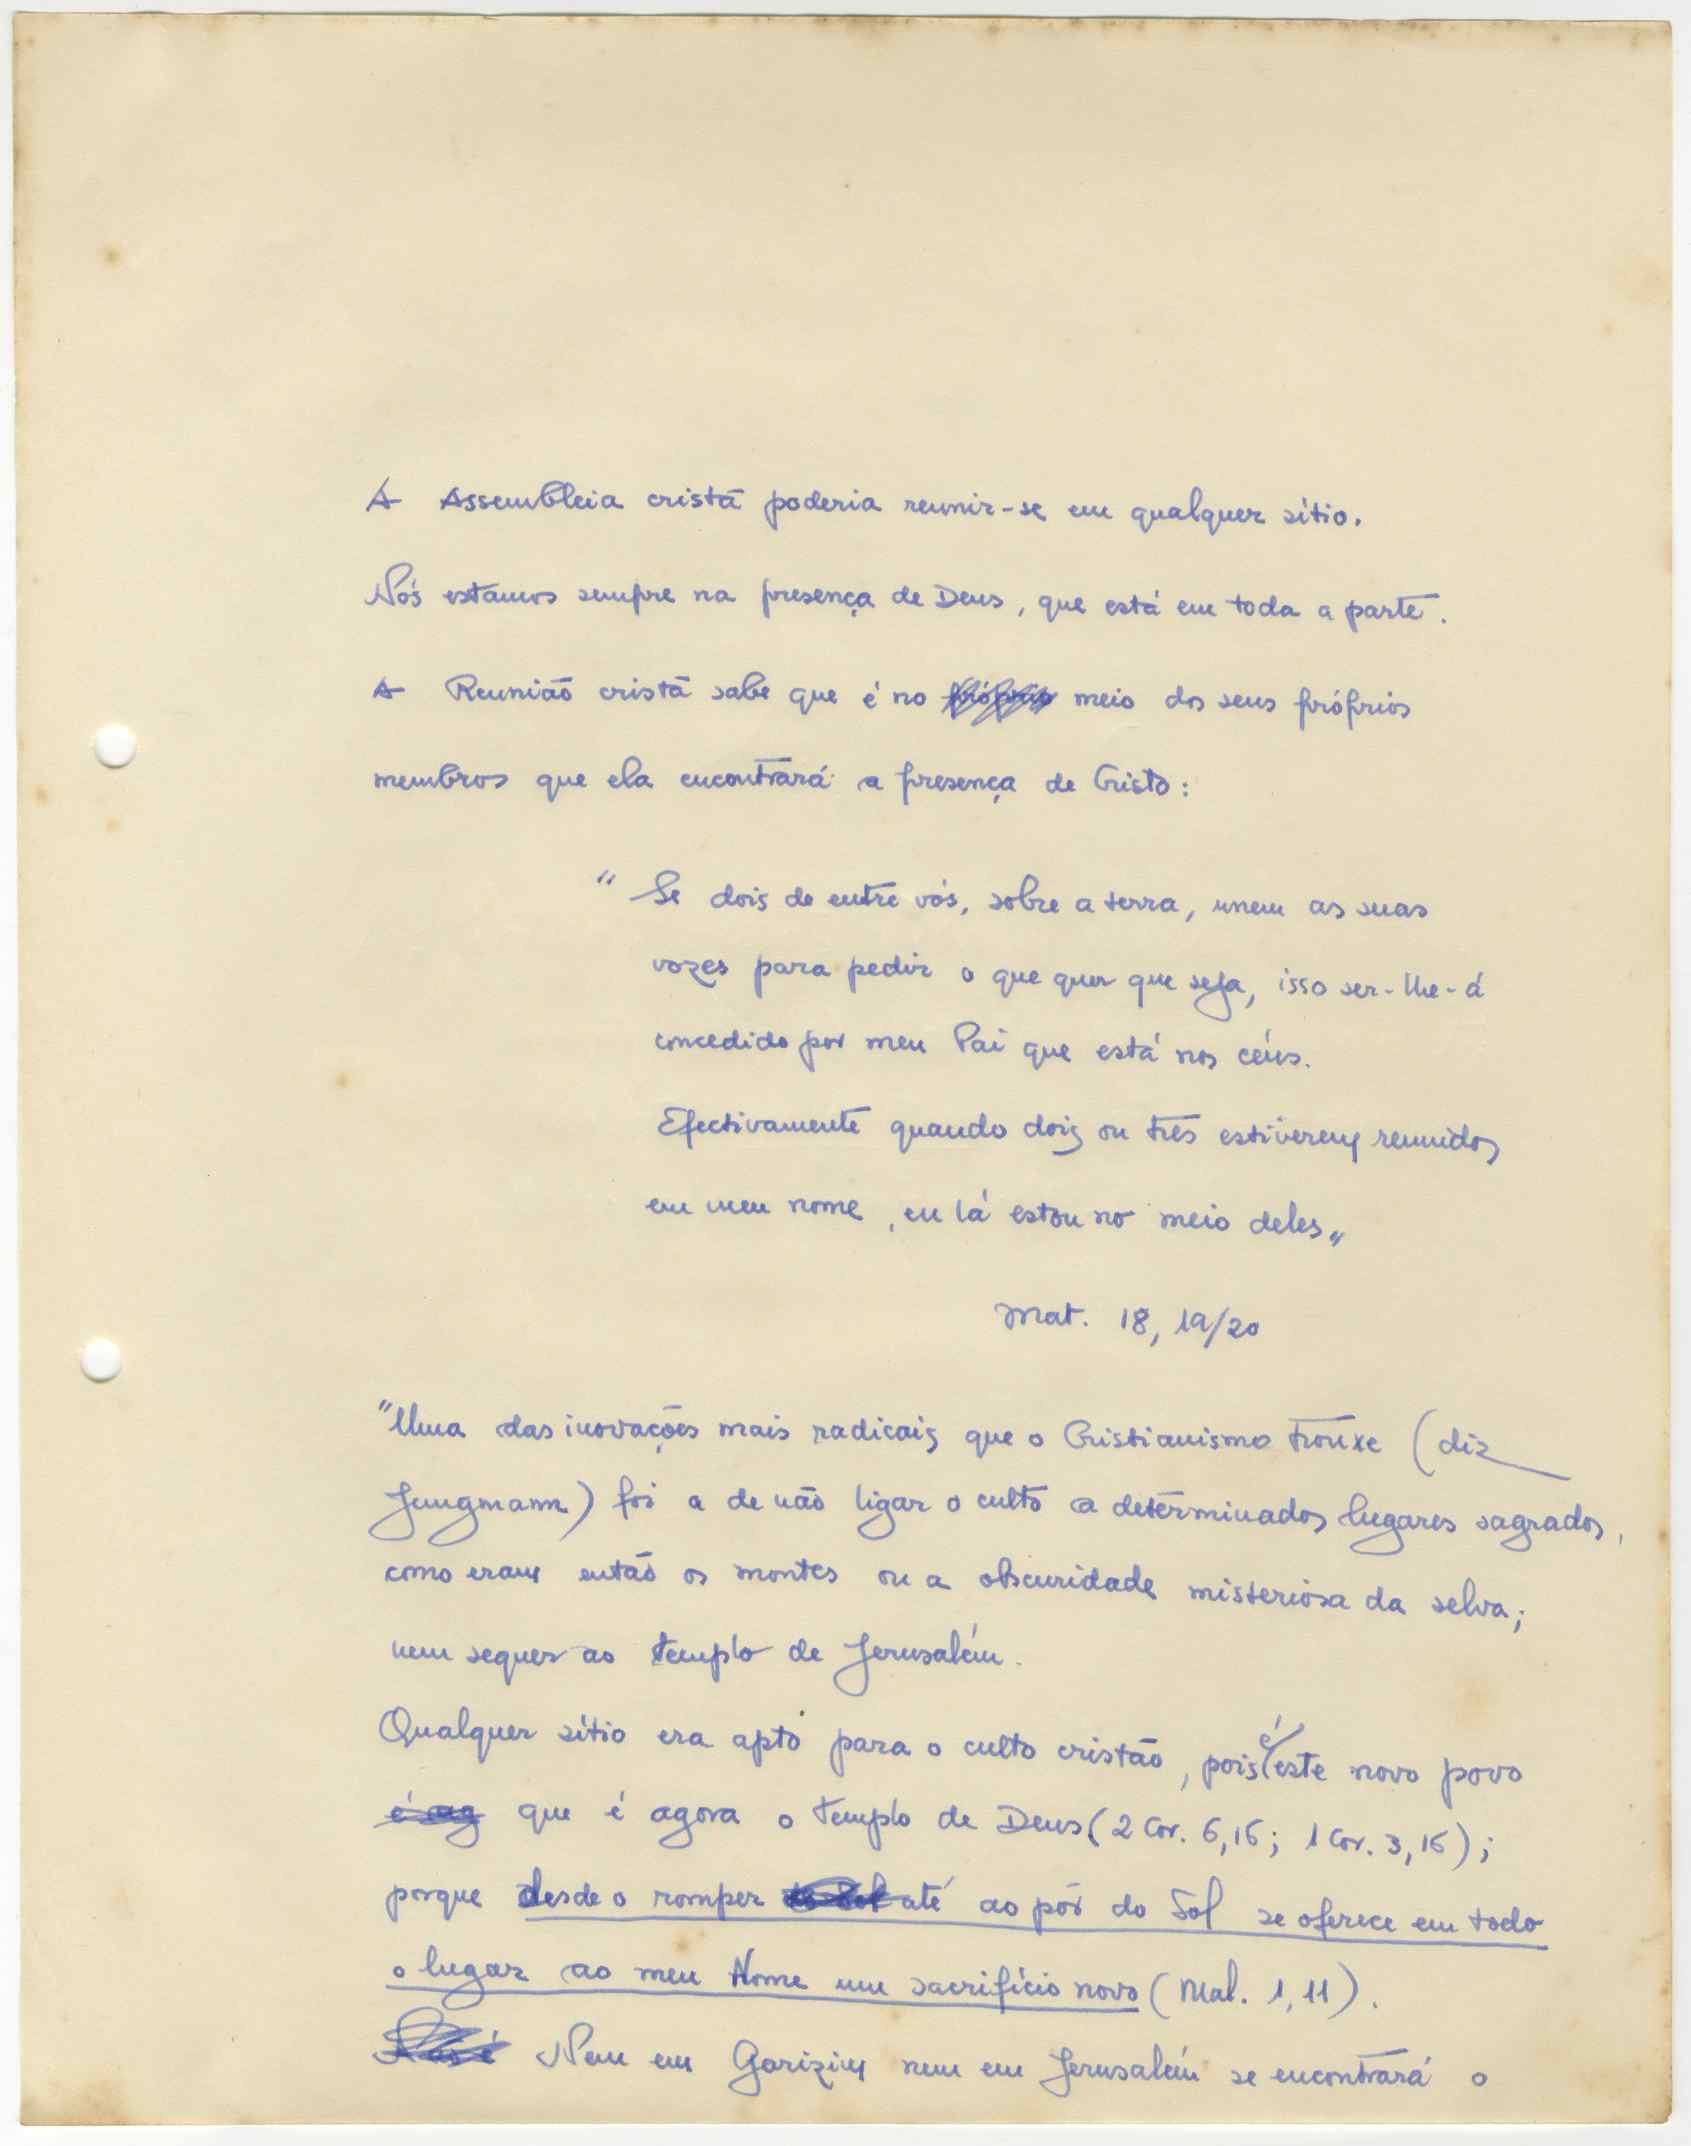 A Assembleia cristã poderia reunir-se em qualquer sítio.
Nós estamos sempre na presença de Deus, que está em toda a parte.
A Reunião cristã sabe que é no próprio meio dos seus próprios
membros que ela encontrará a presença de Cristo:
" Se dois de entre vós, sobre a terra, unem as suas
vozes para pedir o que quer que seja, isso ser-lhe-á
concedido por meu Pai que está nos céus.
Efectivamente quando dois ou três estiverem reunidos
em meu nome, eu lá estou no meio deles"
Mat. 18, 19/20
"Uma das inovações mais radicais que o Cristianismo trouxe (diz
Jungmann) foi a de não ligar o culto a determinados lugares sagrados,
como eram então os montes ou a obscuridade misteriosa da selva;
nem sequer ao templo de Jerusalém.
Qualquer sítio era apto para o culto cristão, pois é este novo povo
é ag que é agora o templo de Deus (2 Cor. 6,16; 1 Cor. 3,16);
porque desde o romper do Sol até ao pôr do Sol se oferece em todo
o lugar ao meu Nome um sacrifício novo (Mal. 1,11).
Nem em Garizim nem em Jerusalém se encontrará o